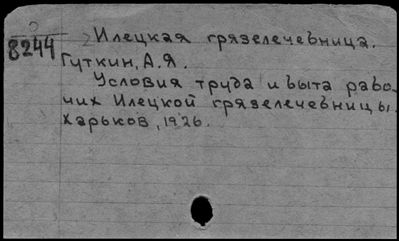 Илецкая грязелечебница.
8244
Гуткин, А.Я.
Условия труда и быта рабо-
чих Илецкой грязелечебницы.
Харьков, 1926.